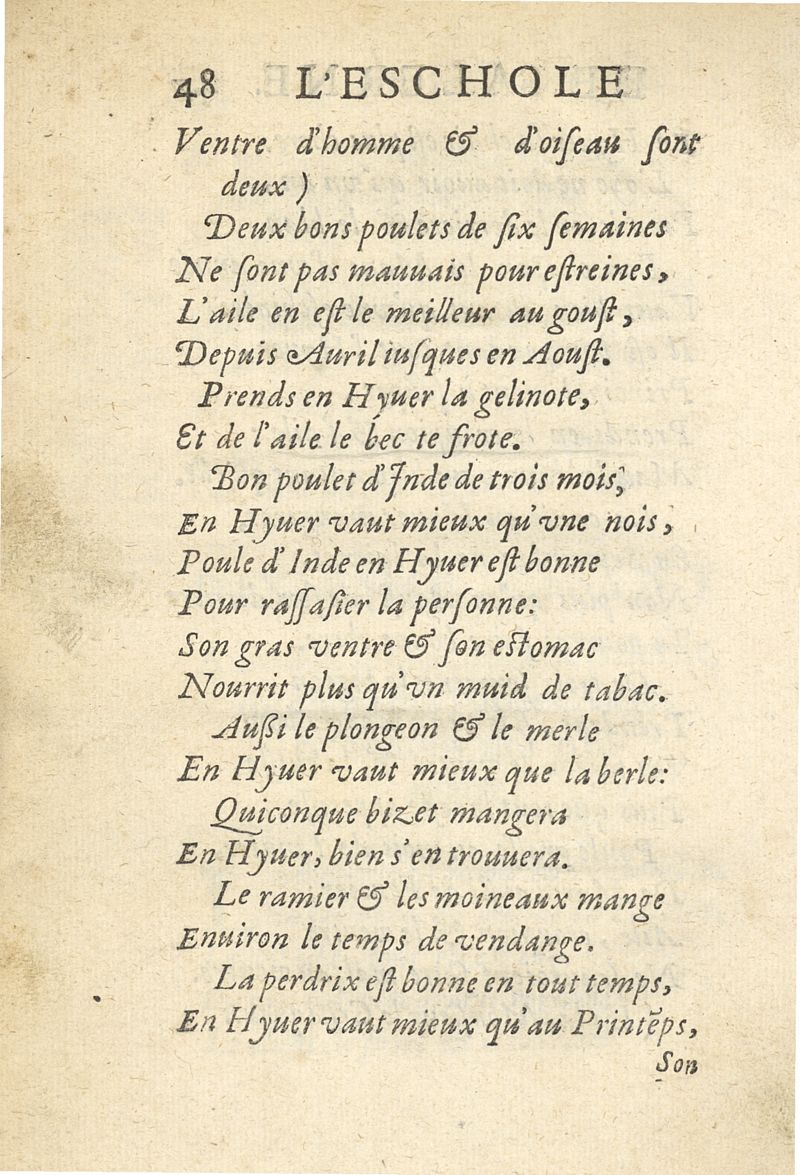 48 L'ESCHOLE
Ventre d'homme & d'oiſeau ſont
deux )
Deux bons poulets de ſix ſemaines
Ne ſont pas mauuais pour eſtreines,
L'aile en eſt le meilleur au gouſt,
Depuis Auril iuſques en Aouſt.
Prends en Hyuer la gelinote,
Et de l'aile le bec te frote.
Bon poulet d'Inde de trois mois,
En Hyuer vaut mieux qu'vne nois,
Poule d'Inde en Hyuer eſt bonne
Pour raſſaſier la perſonne:
Son gras ventre & ſon eſtomac
Nourrit plus qu'vn muid de tabac.
Außi le plongeon & le merle
En Hyuer vaut mieux que la berle:
Quiconque bizet mangera
En Hyuer, bien s'en trouuera.
Le ramier & les moineaux mange
Enuiron le temps de vendange.
La perdrix eſt bonne en tout temps,
En Hyuer vaut mieux qu'au Printẽps,
Son